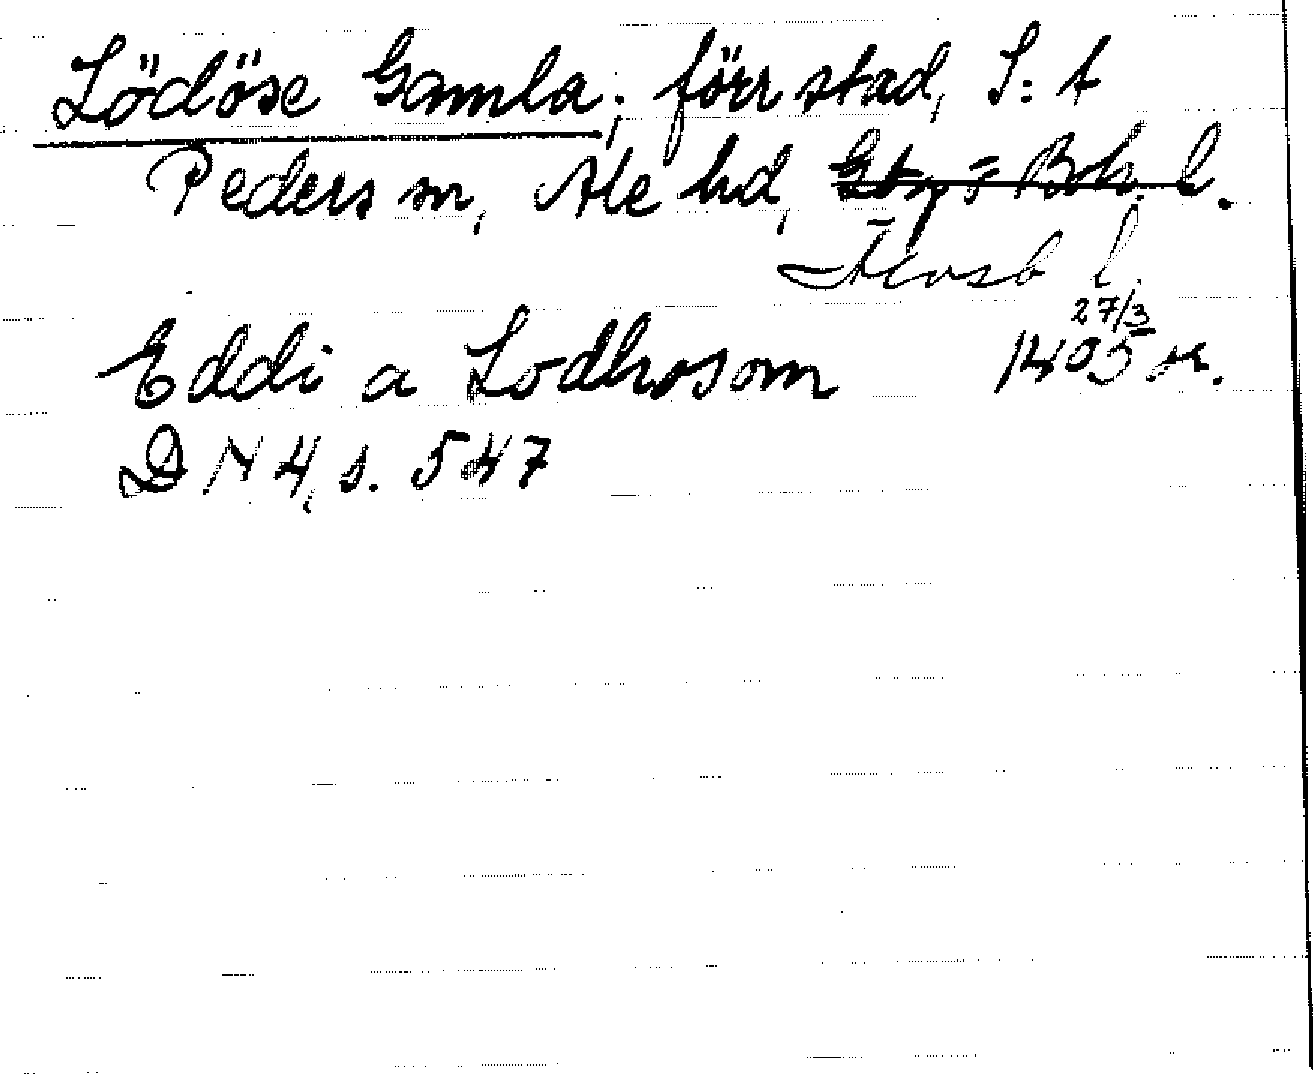 Lödöse Gamla; förr stad, S:t
Peders sn, Ale hd, Gbgs= Boh. l.
Älvsb l.
27/3
Eddi a Lodhosom 1405 or.
DN 4, s. 547